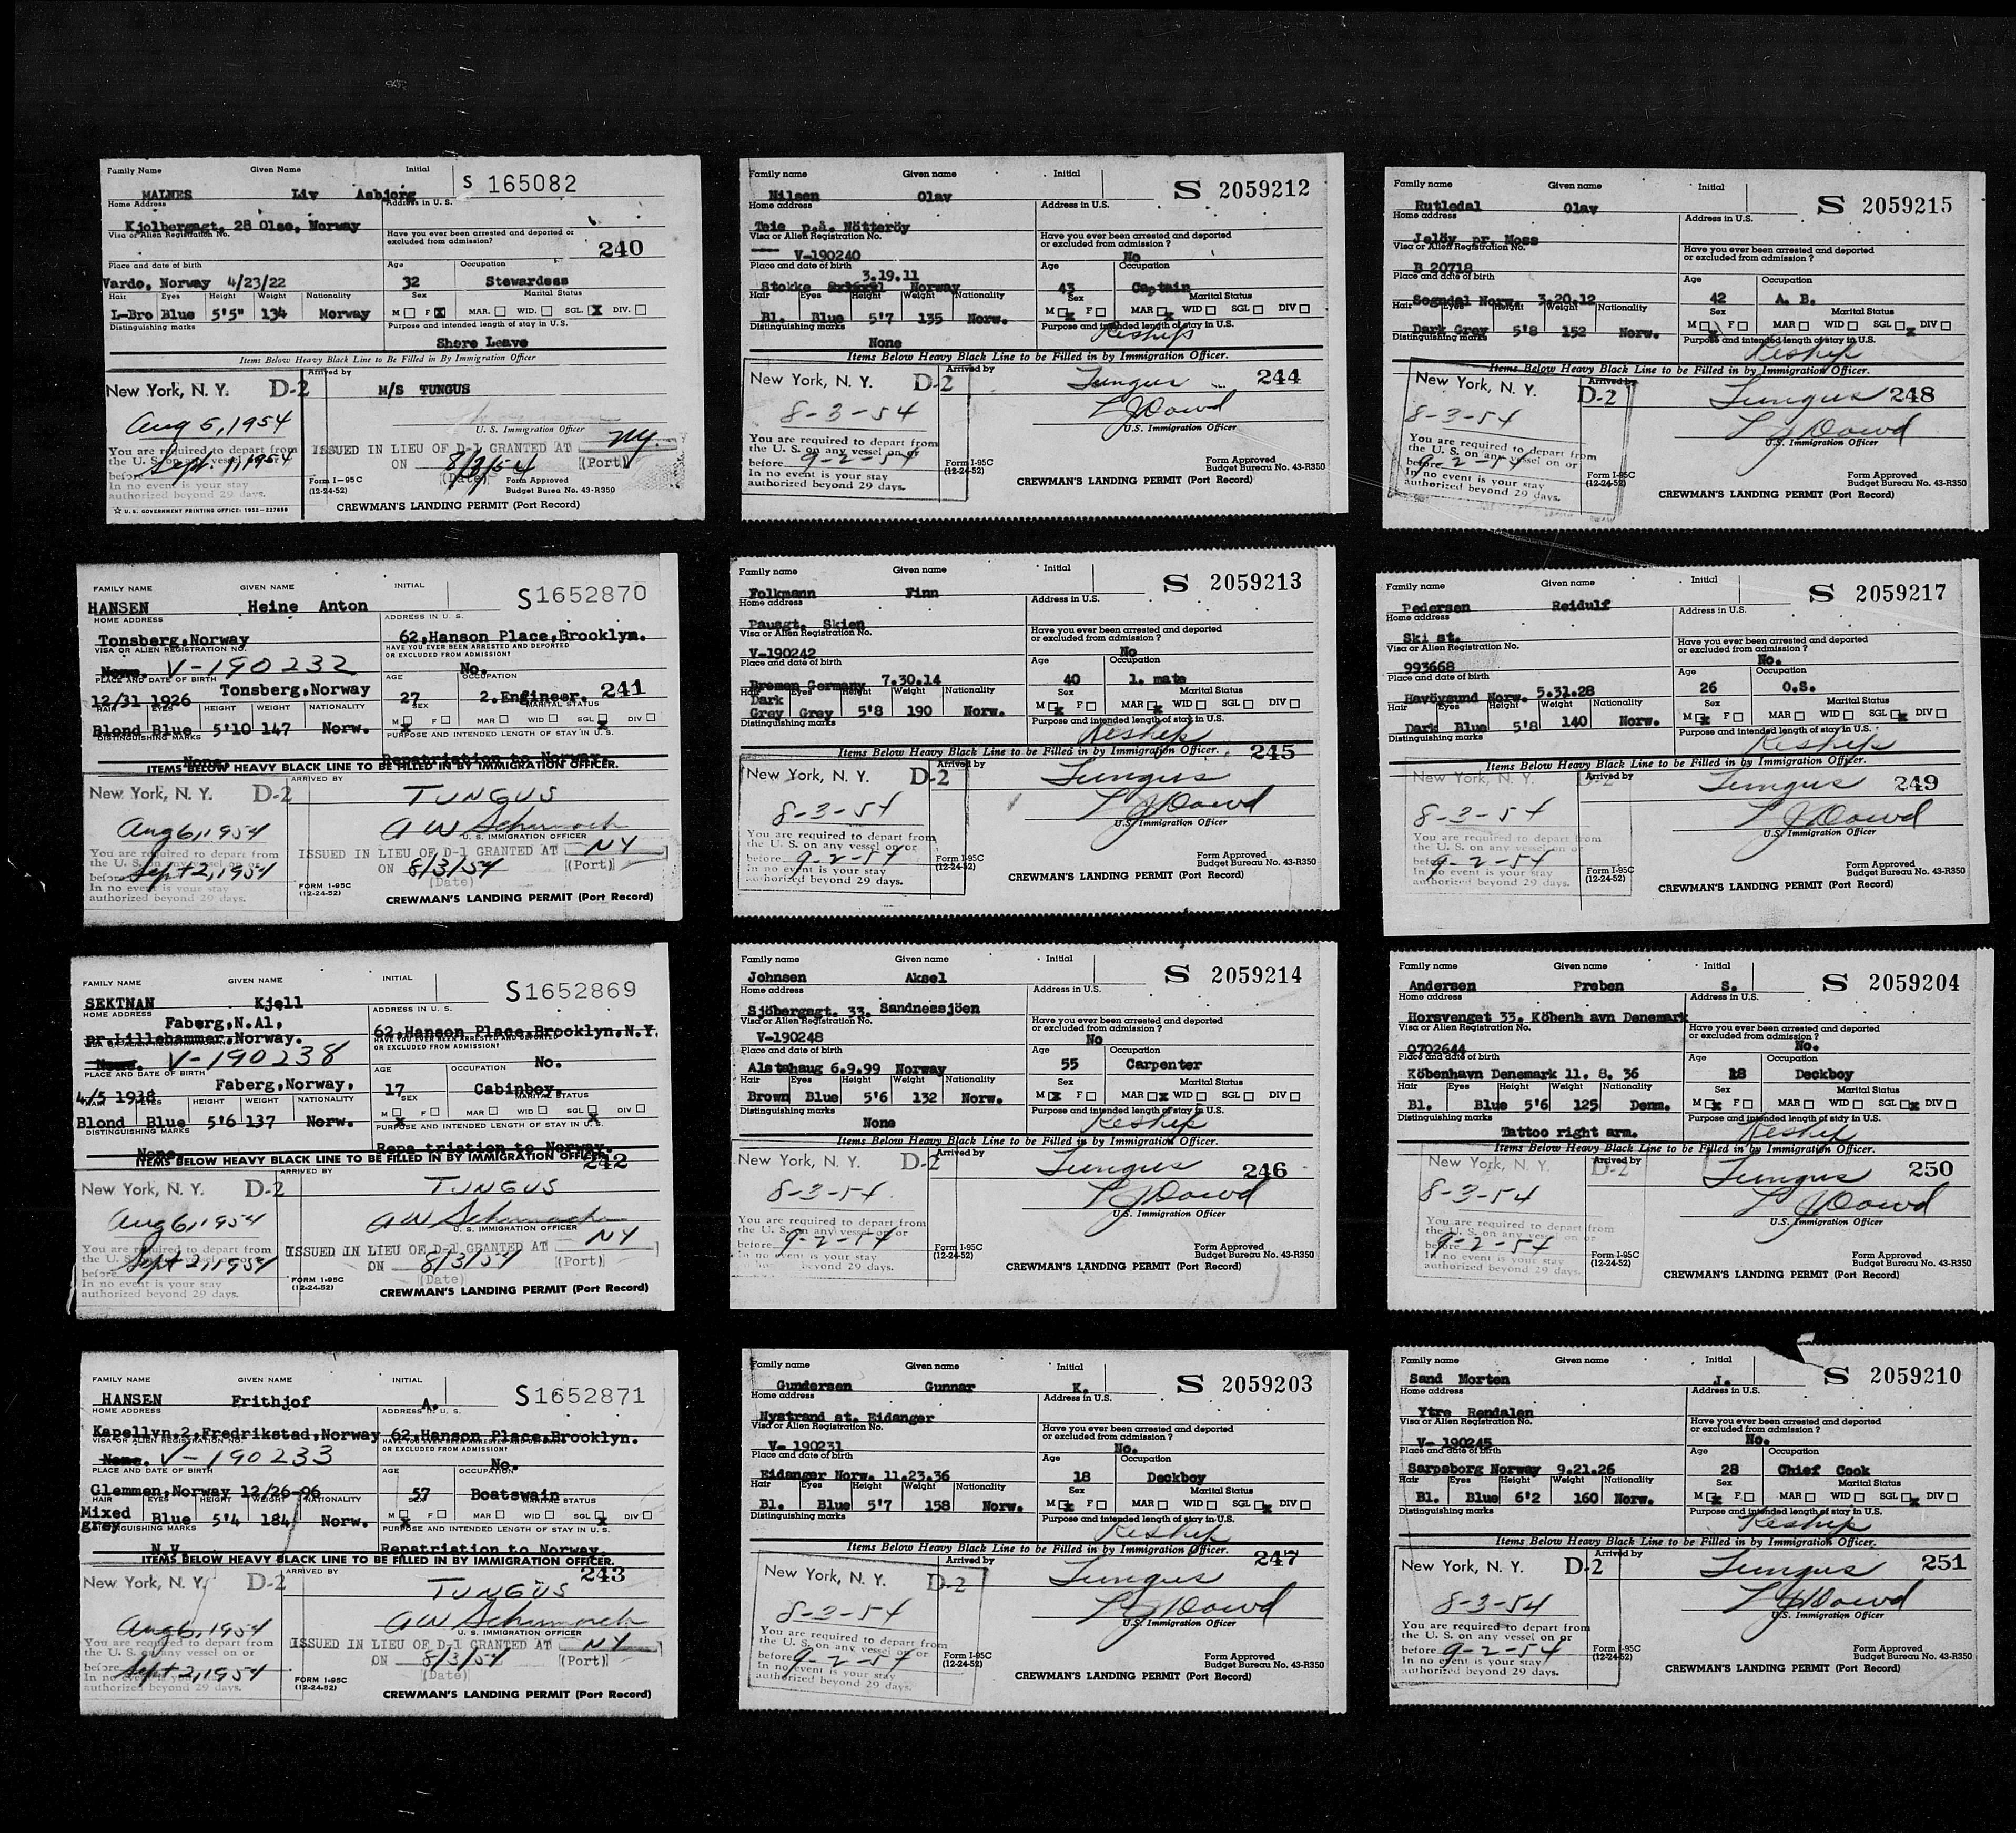 Family Name Given Name Initial S 165082
MALNES Liv Asbjorg
Home Address Address in U.S.
Kjolbergagt. 28 Olso, Norway
Visa or Alien Registration No. Have you ever been arrested and deported or excluded from admission? 240
Place and date of birth Age Occupation
Vardo, Norway 4/23/22 32 Stewardess
Hair Eyes Height Weight Nationality Sex Marital Status
L-Bro Blue 5'5" 134 Norway M ☐ F ☒ MAR. ☐ WID. ☐ SGL. ☒ DIV. ☐
Distinguishing marks Purpose and intended length of stay in U.S.
Shore Leave
Items Below Heavy Black Line to Be Filled in By Immigration Officer
New York, N. Y. D-2 Arrived by
M/S TUNGUS
Aug 5, 1954
U. S. Immigration Officer
You are required to depart from
the U. S. on any vessel on or
before Sept. 1, 1954
In no event is your stay
authorized beyond 29 days.
ISSUED IN LIEU OF D-1 GRANTED AT NY.
ON 8/3/54 (Port)
(Date)
Form I-95 C
(12-24-52)
Form Approved
Budget Burea No. 43-R350
☆ U. S. GOVERNMENT PRINTING OFFICE: 1952-227856
CREWMAN'S LANDING PERMIT (Port Record)
FAMILY NAME GIVEN NAME INITIAL S1652870
HANSEN Heine Anton
HOME ADDRESS ADDRESS IN U. S.
Tonsberg,Norway 62,Hanson Place,Brooklyn.
VISA OR ALIEN REGISTRATION NO. HAVE YOU EVER BEEN ARRESTED AND DEPORTED OR EXCLUDED FROM ADMISSION?
None. V-190232 No.
PLACE AND DATE OF BIRTH AGE OCCUPATION
12/31 1926 Tonsberg,Norway 27 2.Engineer. 241
HAIR EYES HEIGHT WEIGHT NATIONALITY SEX MARITAL STATUS
Blond Blue 5'10 147 Norw. M ☒ F ☐ MAR ☐ WID ☐ SGL ☒ DIV ☐
DISTINGUISHING MARKS PURPOSE AND INTENDED LENGTH OF STAY IN U. S.
None. Repatriation to Norway.
ITEMS BELOW HEAVY BLACK LINE TO BE FILLED IN BY IMMIGRATION OFFICER.
New York, N. Y. D-2 ARRIVED BY
TUNGUS
Aug 6, 1954 A W Schumach
U. S. IMMIGRATION OFFICER
You are required to depart from
the U. S. on any vessel on or
before Sept 2, 1954
In no event is your stay
authorized beyond 29 days.
ISSUED IN LIEU OF D-1 GRANTED AT NY
ON 8/3/54 (Port)
(Date)
FORM I-95C
(12-24-52)
CREWMAN'S LANDING PERMIT (Port Record)
FAMILY NAME GIVEN NAME INITIAL S1652869
SEKTNAN Kjell
HOME ADDRESS ADDRESS IN U. S.
Faberg,N.Al,
pr.Lillehammer,Norway. 62,Hanson Place,Brooklyn,N.Y.
HAVE YOU EVER BEEN ARRESTED AND DEPORTED OR EXCLUDED FROM ADMISSION?
None. V-190238 No.
PLACE AND DATE OF BIRTH AGE OCCUPATION
4/5 1938 Faberg,Norway, 17 Cabinboy.
HAIR EYES HEIGHT WEIGHT NATIONALITY SEX MARITAL STATUS
Blond Blue 5'6 137 Norw. M ☒ F ☐ MAR ☐ WID ☐ SGL ☒ DIV ☐
DISTINGUISHING MARKS PURPOSE AND INTENDED LENGTH OF STAY IN U. S.
None. Repa triation to Norway.
ITEMS BELOW HEAVY BLACK LINE TO BE FILLED IN BY IMMIGRATION OFFICER. 242
New York, N. Y. D-2 ARRIVED BY
TUNGUS
Aug 6, 1954 A W Schumach
U. S. IMMIGRATION OFFICER
You are required to depart from
the U. S. on any vessel on or
before Sept 2, 1954
In no event is your stay
authorized beyond 29 days.
ISSUED IN LIEU OF D-1 GRANTED AT NY
ON 8/3/54 (Port)
(Date)
FORM I-95C
(12-24-52)
CREWMAN'S LANDING PERMIT (Port Record)
FAMILY NAME GIVEN NAME INITIAL S1652871
HANSEN Frithjof A.
HOME ADDRESS ADDRESS IN U. S.
Kapellvn.2,Fredrikstad,Norway 62,Hanson Place,Brooklyn.
VISA OR ALIEN REGISTRATION NO. HAVE YOU EVER BEEN ARRESTED AND DEPORTED OR EXCLUDED FROM ADMISSION?
None. V-190233 No.
PLACE AND DATE OF BIRTH AGE OCCUPATION
Glemmen,Norway 12/26-96 57 Boatswain
HAIR EYES HEIGHT WEIGHT NATIONALITY SEX MARITAL STATUS
Mixed grey Blue 5'4 184 Norw. M ☒ F ☐ MAR ☐ WID ☐ SGL ☒ DIV ☐
DISTINGUISHING MARKS PURPOSE AND INTENDED LENGTH OF STAY IN U. S.
N.V. Repatriation to Norway.
ITEMS BELOW HEAVY BLACK LINE TO BE FILLED IN BY IMMIGRATION OFFICER.
New York, N. Y. D-2 ARRIVED BY 243
TUNGUS
Aug 6, 1954 A W Schumach
U. S. IMMIGRATION OFFICER
You are required to depart from
the U. S. on any vessel on or
before Sept 2, 1954
In no event is your stay
authorized beyond 29 days.
ISSUED IN LIEU OF D-1 GRANTED AT NY
ON 8/3/54 (Port)
(Date)
FORM I-95C
(12-24-52)
CREWMAN'S LANDING PERMIT (Port Record)
Family name Given name Initial S 2059212
Nilsen Olav
Home address Address in U.S.
Teie p.å. Nötteröy
Visa or Alien Registration No. Have you ever been arrested and deported or excluded from admission ?
V-190240 No
Place and date of birth Age Occupation
3.19.11
Stokke Norway 43 Captain
Hair Eyes Height Weight Nationality Sex Marital Status
Bl. Blue 5'7 135 Norw. M ☒ F ☐ MAR ☒ WID ☐ SGL ☐ DIV ☐
Distinguishing marks Purpose and intended length of stay in U.S.
None Reship
Items Below Heavy Black Line to be Filled in by Immigration Officer.
New York, N. Y. D-2 Arrived by Tungus 244
8-3-54 L J Dowd
U.S. Immigration Officer
You are required to depart from
the U. S. on any vessel on or
before 9-2-54
In no event is your stay
authorized beyond 29 days.
Form I-95C
(12-24-52)
Form Approved
Budget Bureau No. 43-R350
CREWMAN'S LANDING PERMIT (Port Record)
Family name Given name Initial S 2059213
Folkmann Finn
Home address Address in U.S.
Pausgt. Skien
Visa or Alien Registration No. Have you ever been arrested and deported or excluded from admission ?
V-190242 No
Place and date of birth Age Occupation
Bremen Germany 7.30.14 40 1. mate
Hair Eyes Height Weight Nationality Sex Marital Status
Dark Grey Grey 5'8 190 Norw. M ☒ F ☐ MAR ☒ WID ☐ SGL ☐ DIV ☐
Distinguishing marks Purpose and intended length of stay in U.S.
Reship
Items Below Heavy Black Line to be Filled in by Immigration Officer. 245
New York, N. Y. D-2 Arrived by Tungus
8-3-54 L J Dowd
U.S. Immigration Officer
You are required to depart from
the U. S. on any vessel on or
before 9-2-54
In no event is your stay
authorized beyond 29 days.
Form I-95C
(12-24-52)
Form Approved
Budget Bureau No. 43-R350
CREWMAN'S LANDING PERMIT (Port Record)
Family name Given name Initial S 2059214
Johnsen Aksel
Home address Address in U.S.
Sjöbergagt. 33. Sandnessjöen
Visa or Alien Registration No. Have you ever been arrested and deported or excluded from admission ?
V-190248 No
Place and date of birth Age Occupation
Alstahaug 6.9.99 Norway 55 Carpenter
Hair Eyes Height Weight Nationality Sex Marital Status
Brown Blue 5'6 132 Norw. M ☒ F ☐ MAR ☒ WID ☐ SGL ☐ DIV ☐
Distinguishing marks Purpose and intended length of stay in U.S.
None Reship
Items Below Heavy Black Line to be Filled in by Immigration Officer.
New York, N. Y. D-2 Arrived by Tungus 246
8-3-54 L J Dowd
U.S. Immigration Officer
You are required to depart from
the U. S. on any vessel on or
before 9-2-54
In no event is your stay
beyond 29 days.
Form I-95C
(12-24-52)
Form Approved
Budget Bureau No. 43-R350
CREWMAN'S LANDING PERMIT (Port Record)
Family name Given name Initial S 2059203
Gundersen Gunnar K.
Home address Address in U.S.
Nystrand st. Eidanger
Visa or Alien Registration No. Have you ever been arrested and deported or excluded from admission ?
V- 190231 No.
Place and date of birth Age Occupation
Eidanger Norw. 11.23.36 18 Deckboy
Hair Eyes Height Weight Nationality Sex Marital Status
Bl. Blue 5'7 158 Norw. M ☒ F ☐ MAR ☐ WID ☐ SGL ☒ DIV ☐
Distinguishing marks Purpose and intended length of stay in U.S.
Reship
Items Below Heavy Black Line to be Filled in by Immigration Officer.
New York, N. Y. D-2 Arrived by Tungus 247
8-3-54 L J Dowd
U.S. Immigration Officer
You are required to depart from
the U. S. on any vessel on or
before 9-2-54
In no event is your stay
authorized beyond 29 days.
Form I-95C
(12-24-52)
Form Approved
Budget Bureau No. 43-R350
CREWMAN'S LANDING PERMIT (Port Record)
Family name Given name Initial S 2059215
Rutledal Olav
Home address Address in U.S.
Jelöy pr. Moss
Visa or Alien Registration No. Have you ever been arrested and deported or excluded from admission ?
B 20718
Place and date of birth Age Occupation
Sogndal Norw. 3.20.12 42 A. B.
Hair Eyes Height Weight Nationality Sex Marital Status
Dark Grey 5'8 152 Norw. M ☒ F ☐ MAR ☐ WID ☐ SGL ☒ DIV ☐
Distinguishing marks Purpose and intended length of stay in U.S.
Reship
Items Below Heavy Black Line to be Filled in by Immigration Officer.
New York, N. Y. D-2 Arrived by Tungus 248
8-3-54 L J Dowd
U.S. Immigration Officer
You are required to depart from
the U. S. on any vessel on or
before 9-2-54
In no event is your stay
authorized beyond 29 days.
Form I-95C
(12-24-52)
Form Approved
Budget Bureau No. 43-R350
CREWMAN'S LANDING PERMIT (Port Record)
Family name Given name Initial S 2059217
Pedersen Reidulf
Home address Address in U.S.
Ski st.
Visa or Alien Registration No. Have you ever been arrested and deported or excluded from admission ?
993668 No.
Place and date of birth Age Occupation
Havöysund Norw. 5.31.28 26 O.S.
Hair Eyes Height Weight Nationality Sex Marital Status
Dark Blue 5'8 140 Norw. M ☒ F ☐ MAR ☐ WID ☐ SGL ☒ DIV ☐
Distinguishing marks Purpose and intended length of stay in U.S.
Reship
Items Below Heavy Black Line to be Filled in by Immigration Officer.
New York, N. Y. D-2 Arrived by Tungus 249
8-3-54 L J Dowd
U.S. Immigration Officer
You are required to depart from
the U. S. on any vessel on or
before 9-2-54
In no event is your stay
authorized beyond 29 days.
Form I-95C
(12-24-52)
Form Approved
Budget Bureau No. 43-R350
CREWMAN'S LANDING PERMIT (Port Record)
Family name Given name Initial S 2059204
Andersen Preben S.
Home address Address in U.S.
Horsvenget 33. Köbenh avn Denemark
Visa or Alien Registration No. Have you ever been arrested and deported or excluded from admission ?
0702644 No.
Place and date of birth Age Occupation
Köbenhavn Denemark 11. 8. 36 18 Deckboy
Hair Eyes Height Weight Nationality Sex Marital Status
Bl. Blue 5'6 125 Denm. M ☒ F ☐ MAR ☐ WID ☐ SGL ☒ DIV ☐
Distinguishing marks Purpose and intended length of stay in U.S.
Tattoo right arm. Reship
Items Below Heavy Black Line to be Filled in by Immigration Officer.
New York, N. Y. D-2 Arrived by Tungus 250
8-3-54 L J Dowd
U.S. Immigration Officer
You are required to depart from
the U. S. on any vessel on or
before 9-2-54
In no event is your stay
authorized beyond 29 days.
Form I-95C
(12-24-52)
Form Approved
Budget Bureau No. 43-R350
CREWMAN'S LANDING PERMIT (Port Record)
Family name Given name Initial S 2059210
Sand Morten J.
Home address Address in U.S.
Ytre Rendalen
Visa or Alien Registration No. Have you ever been arrested and deported or excluded from admission ?
V- 190245 No.
Place and date of birth Age Occupation
Sarpsborg Norway 9.21.26 28 Chief Cook
Hair Eyes Height Weight Nationality Sex Marital Status
Bl. Blue 6'2 160 Norw. M ☒ F ☐ MAR ☐ WID ☐ SGL ☒ DIV ☐
Distinguishing marks Purpose and intended length of stay in U.S.
Reship
Items Below Heavy Black Line to be Filled in by Immigration Officer.
New York, N. Y. D-2 Arrived by Tungus 251
8-3-54 L J Dowd
U.S. Immigration Officer
You are required to depart from
the U. S. on any vessel on or
before 9-2-54
In no event is your stay
authorized beyond 29 days.
Form I-95C
(12-24-52)
Form Approved
Budget Bureau No. 43-R350
CREWMAN'S LANDING PERMIT (Port Record)